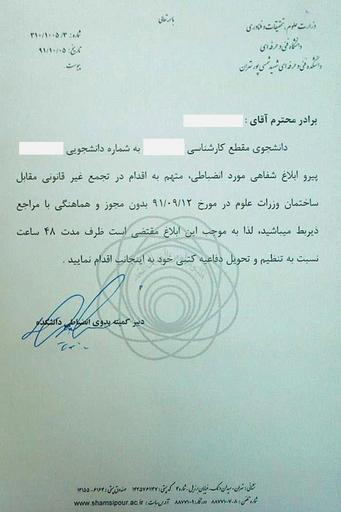 باسمه تعالی
وزارت علوم، تحقیقات و فناوری
دانشگاه فنی و حرفه ای
دانشکده فنی و حرفه ای شهید شمسی پور تهران
شماره: ۳۱۰/۱۰۰۵/۳
تاریخ: ۹۱/۱۰/۰۵
پیوست:
برادر محترم آقای :
دانشجوی مقطع کارشناسی به شماره دانشجویی
پیرو ابلاغ شفاهی مورد انضباطی، متهم به اقدام در تجمع غیر قانونی مقابل
ساختمان وزرات علوم در مورخ ۹۱/۰۹/۱۲ بدون مجوز و هماهنگی با مراجع
ذیربط میباشید، لذا به موجب این ابلاغ مقتضی است ظرف مدت ۴۸ ساعت
نسبت به تنظیم و تحویل دفاعیه کتبی خود به اینجانب اقدام نمایید .
دبیر کمیته بدوی انضباطی دانشکده
نشانی: تهران، میدان ونک، خیابان
www.shamsipour.ac.ir